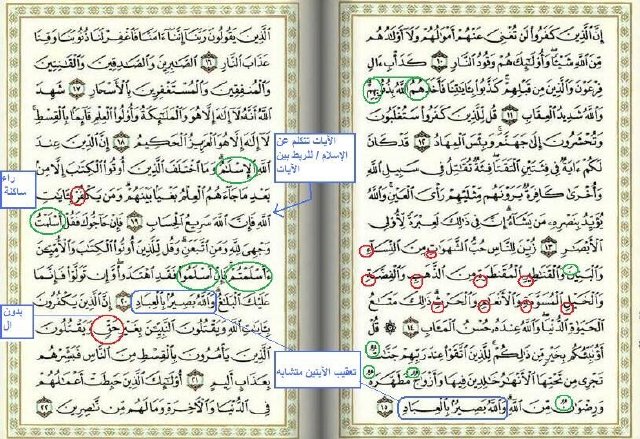 إِنَّ ٱلَّذِينَ كَفَرُوا۟ لَن تُغْنِىَ عَنْهُمْ أَمْوَٰلُهُمْ وَلَآ أَوْلَٰدُهُم
مِّنَ ٱللَّهِ شَيْـًٔا وَأُو۟لَٰٓئِكَ هُمْ وَقُودُ ٱلنَّارِ ١٠ كَدَأْبِ ءَالِ
فِرْعَوْنَ وَٱلَّذِينَ مِن قَبْلِهِمْ كَذَّبُوا۟ بِـَٔايَٰتِنَا فَأَخَذَهُمُ ٱللَّهُ بِذُنُوبِهِمْ
وَٱللَّهُ شَدِيدُ ٱلْعِقَابِ ١١ قُل لِّلَّذِينَ كَفَرُوا۟ سَتُغْلَبُونَ
وَتُحْشَرُونَ إِلَىٰ جَهَنَّمَ وَبِئْسَ ٱلْمِهَادُ ١٢ قَدْ كَانَ
لَكُمْ ءَايَةٌ فِى فِئَتَيْنِ ٱلْتَقَتَا فِئَةٌ تُقَٰتِلُ فِى سَبِيلِ ٱللَّهِ
وَأُخْرَىٰ كَافِرَةٌ يَرَوْنَهُم مِّثْلَيْهِمْ رَأْىَ ٱلْعَيْنِ وَٱللَّهُ
يُؤَيِّدُ بِنَصْرِهِۦ مَن يَشَآءُ إِنَّ فِى ذَٰلِكَ لَعِبْرَةً لِّأُو۟لِى
ٱلْأَبْصَٰرِ ١٣ زُيِّنَ لِلنَّاسِ حُبُّ ٱلشَّهَوَٰتِ مِنَ ٱلنِّسَآءِ
وَٱلْبَنِينَ وَٱلْقَنَٰطِيرِ ٱلْمُقَنطَرَةِ مِنَ ٱلذَّهَبِ وَٱلْفِضَّةِ
وَٱلْخَيْلِ ٱلْمُسَوَّمَةِ وَٱلْأَنْعَٰمِ وَٱلْحَرْثِ ذَٰلِكَ مَتَٰعُ
ٱلْحَيَوٰةِ ٱلدُّنْيَا وَٱللَّهُ عِندَهُۥ حُسْنُ ٱلْمَـَٔابِ ١٤ قُلْ
أَؤُنَبِّئُكُم بِخَيْرٍ مِّن ذَٰلِكُمْ لِلَّذِينَ ٱتَّقَوْا۟ عِندَ رَبِّهِمْ جَنَّٰتٌ
تَجْرِى مِن تَحْتِهَا ٱلْأَنْهَٰرُ خَٰلِدِينَ فِيهَا وَأَزْوَٰجٌ مُّطَهَّرَةٌ
وَرِضْوَٰنٌ مِّنَ ٱللَّهِ وَٱللَّهُ بَصِيرٌۢ بِٱلْعِبَادِ ١٥
ٱلَّذِينَ يَقُولُونَ رَبَّنَآ إِنَّنَآ ءَامَنَّا فَٱغْفِرْ لَنَا ذُنُوبَنَا وَقِنَا
عَذَابَ ٱلنَّارِ ١٦ ٱلصَّٰبِرِينَ وَٱلصَّٰدِقِينَ وَٱلْقَٰنِتِينَ
وَٱلْمُنفِقِينَ وَٱلْمُسْتَغْفِرِينَ بِٱلْأَسْحَارِ ١٧ شَهِدَ
ٱللَّهُ أَنَّهُۥ لَآ إِلَٰهَ إِلَّا هُوَ وَٱلْمَلَٰٓئِكَةُ وَأُو۟لُوا۟ ٱلْعِلْمِ قَآئِمًۢا بِٱلْقِسْطِ
لَآ إِلَٰهَ إِلَّا هُوَ ٱلْعَزِيزُ ٱلْحَكِيمُ ١٨ إِنَّ ٱلدِّينَ عِندَ
ٱللَّهِ ٱلْإِسْلَٰمُ وَمَا ٱخْتَلَفَ ٱلَّذِينَ أُوتُوا۟ ٱلْكِتَٰبَ إِلَّا مِنۢ
بَعْدِ مَا جَآءَهُمُ ٱلْعِلْمُ بَغْيًۢا بَيْنَهُمْ وَمَن يَكْفُرْ بِـَٔايَٰتِ
ٱللَّهِ فَإِنَّ ٱللَّهَ سَرِيعُ ٱلْحِسَابِ ١٩ فَإِنْ حَآجُّوكَ فَقُلْ أَسْلَمْتُ
وَجْهِىَ لِلَّهِ وَمَنِ ٱتَّبَعَنِ وَقُل لِّلَّذِينَ أُوتُوا۟ ٱلْكِتَٰبَ وَٱلْأُمِّيِّـۧنَ
ءَأَسْلَمْتُمْ فَإِنْ أَسْلَمُوا۟ فَقَدِ ٱهْتَدَوا۟ وَّإِن تَوَلَّوْا۟ فَإِنَّمَا
عَلَيْكَ ٱلْبَلَٰغُ وَٱللَّهُ بَصِيرٌۢ بِٱلْعِبَادِ ٢٠ إِنَّ ٱلَّذِينَ يَكْفُرُونَ
بِـَٔايَٰتِ ٱللَّهِ وَيَقْتُلُونَ ٱلنَّبِيِّـۧنَ بِغَيْرِ حَقٍّ وَيَقْتُلُونَ
ٱلَّذِينَ يَأْمُرُونَ بِٱلْقِسْطِ مِنَ ٱلنَّاسِ فَبَشِّرْهُم
بِعَذَابٍ أَلِيمٍ ٢١ أُو۟لَٰٓئِكَ ٱلَّذِينَ حَبِطَتْ أَعْمَٰلُهُمْ
فِى ٱلدُّنْيَا وَٱلْءَاخِرَةِ وَمَا لَهُم مِّن نَّٰصِرِينَ ٢٢
الآيات تتكلم عن
الإسلام / للربط بين
الآيات
راء
ساكنة
بدون
ال
تعقيب الآيتين متشابه